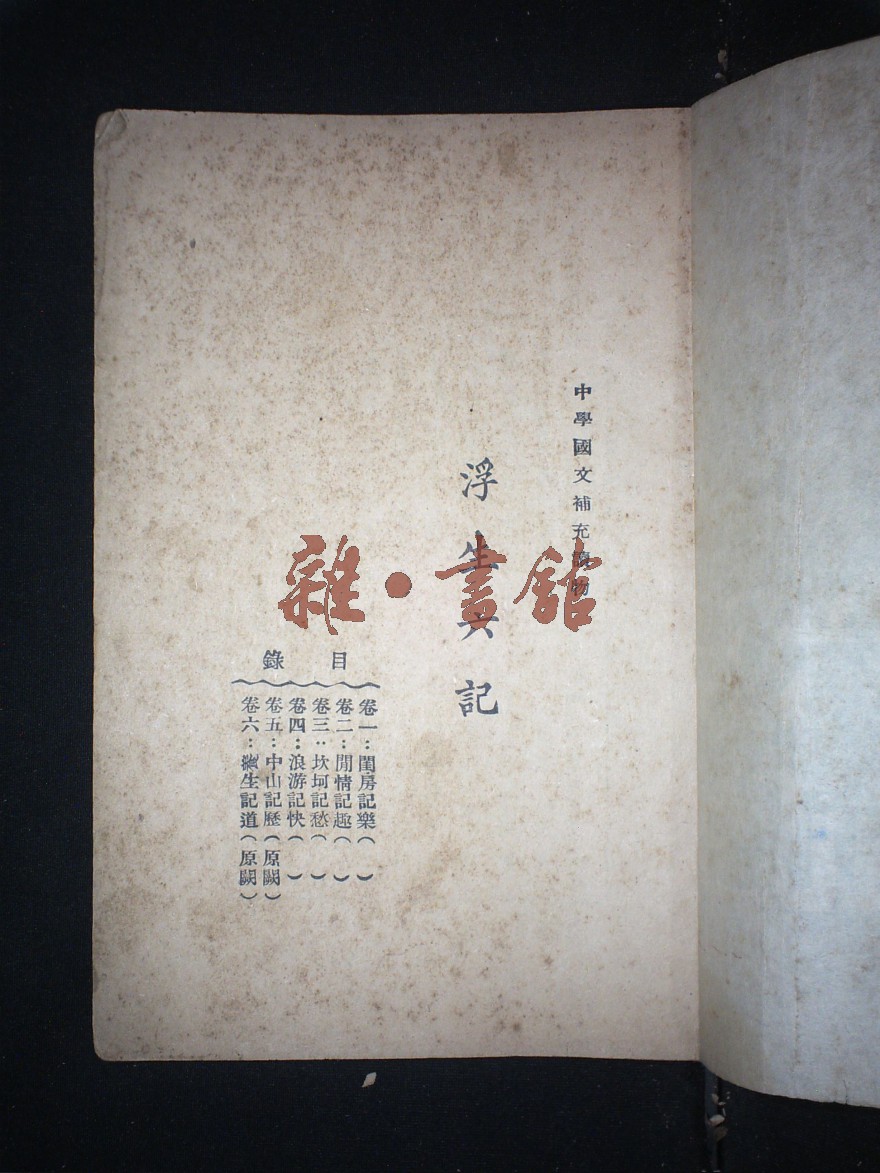 中學國文補充讀物
浮生六記
目錄
卷一：閨房記樂（ ）
卷二：閒情記趣（ ）
卷三：坎坷記愁（ ）
卷四：浪游記快（ ）
卷五：中山記歷（原闕）
卷六：養生記道（原闕）
雜·書舘